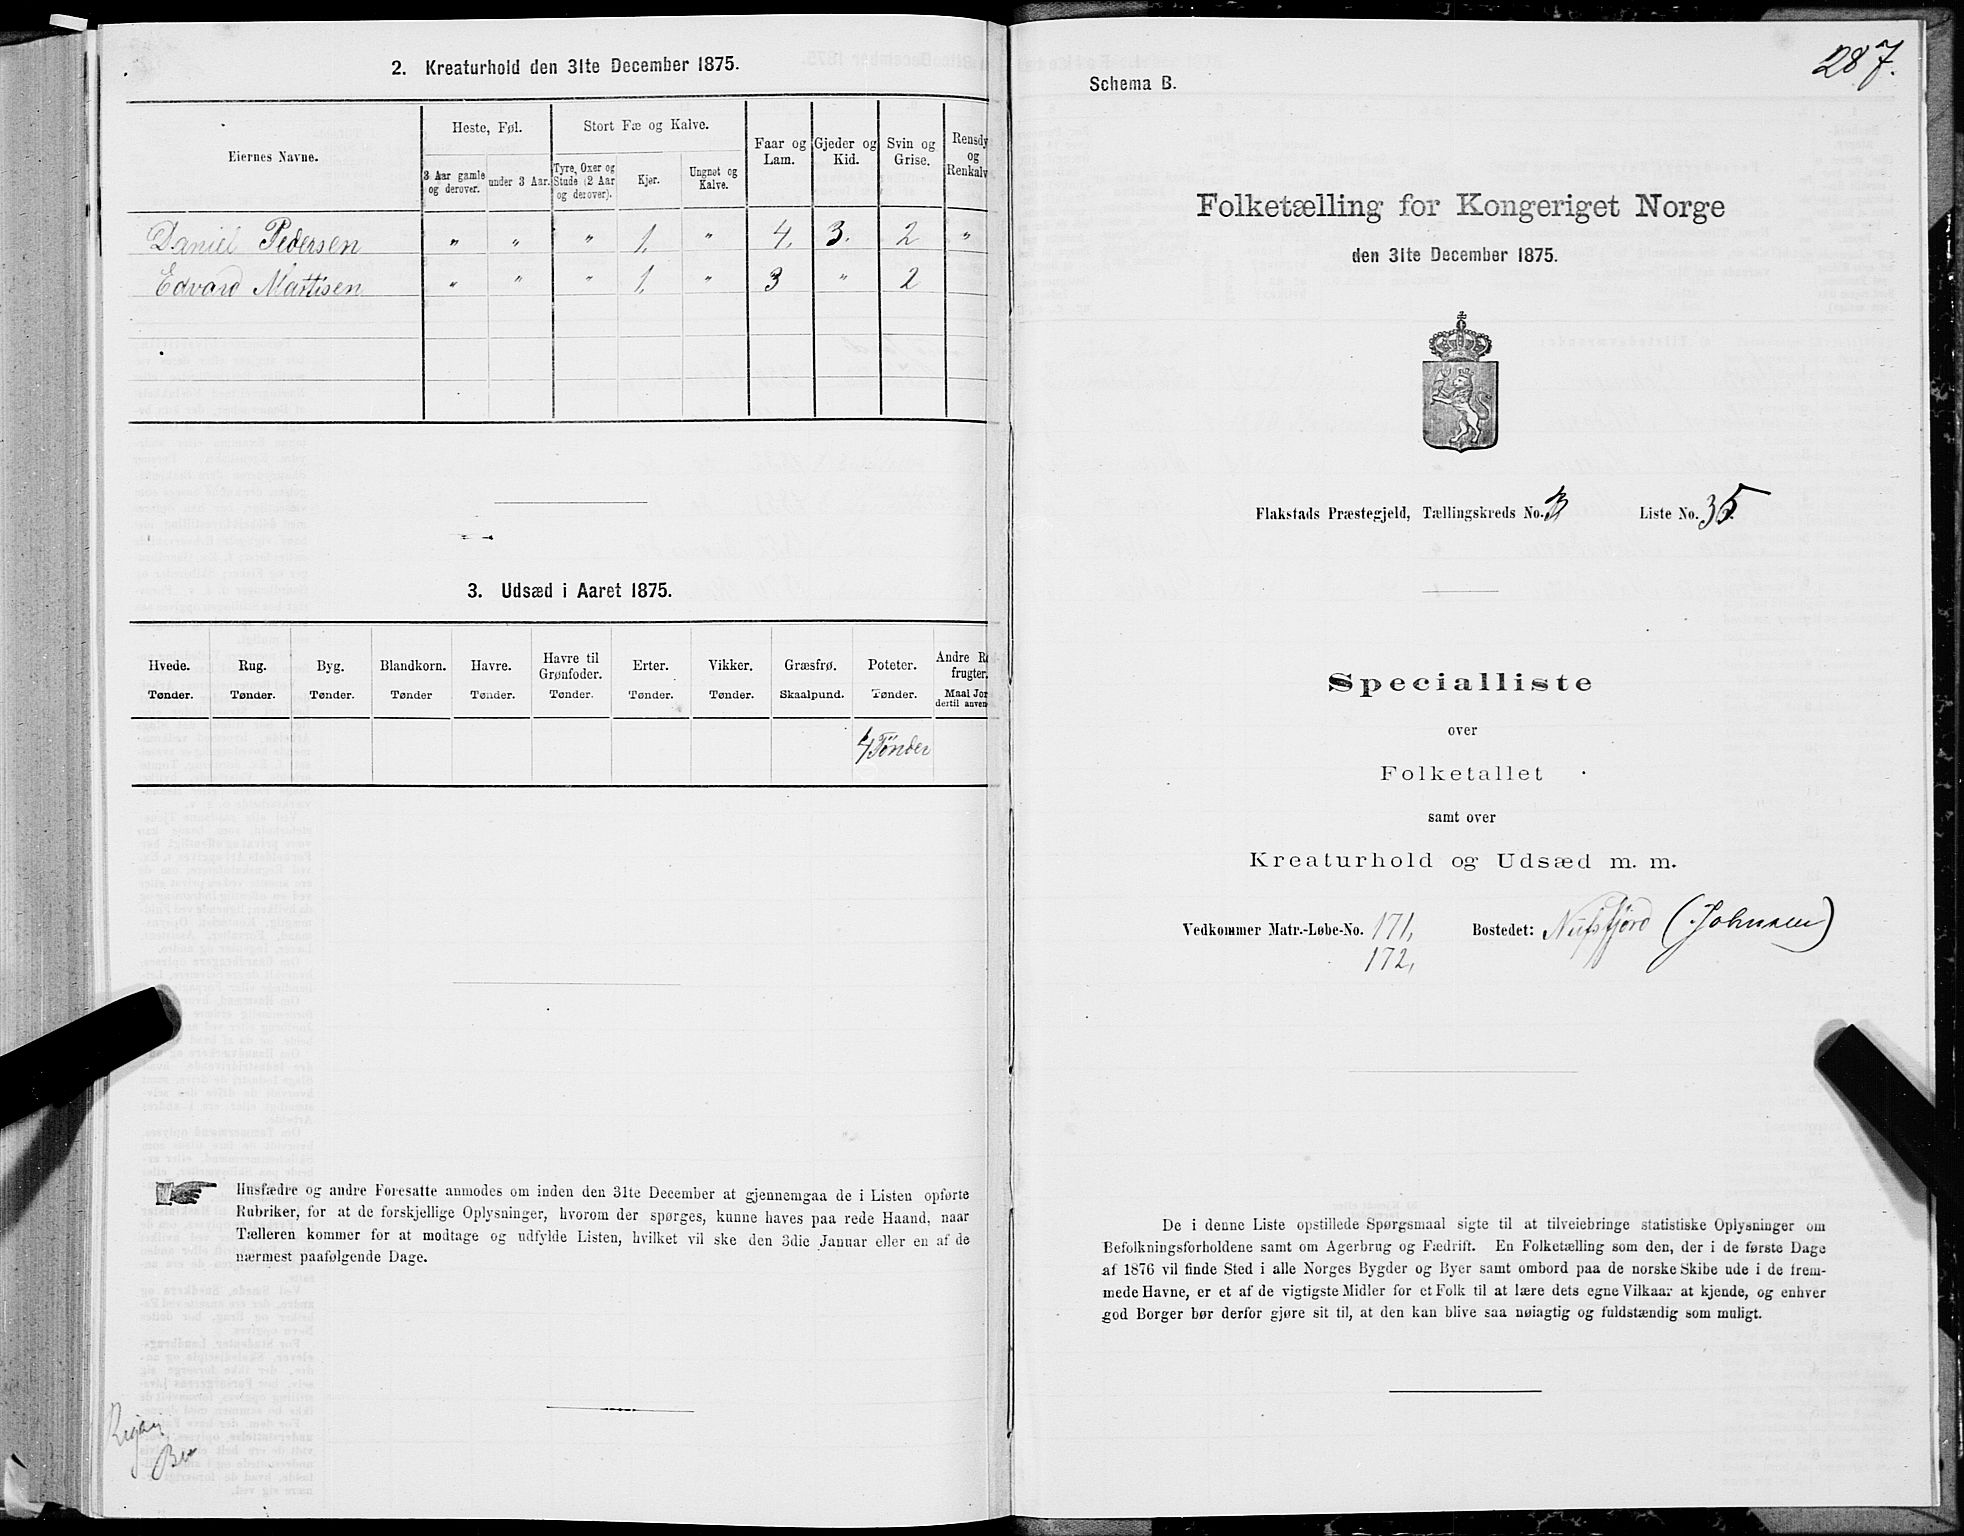 2. Kreaturhold den 31te December 1875.
Eiernes Navne.
Heste, Føl.
Stort Fæ og Kalve.
Faar og Lam.
Gjeder og Kid.
Svin og Grise.
Rensdy
og
Renkalv
3 Aar gamle og derover.
under 3 Aar.
Tyre, Oxer og Stude (2 Aar og derover).
Kjør.
Ungnøt og Kalve.
Daniel Pedersen " " " 1, " 4, 3. 2 "
Edvard Martisen " " " 1, " 3 " 2
3. Udsæd i Aaret 1875.
Hvede. Rug. Byg. Blandkorn. Havre. Havre til Grønfoder. Erter. Vikker. Græsfrø. Poteter. Andre R
frugter.
Tønder. Tønder. Tønder. Tønder Tønder. Tønder. Tønder. Tønder. Skaalpund. Tønder. Maal Jor
dertil anven
4 Tönder
Husfædre og andre Foresatte anmodes om inden den 31te December at gjennemgaa de i Listen opførte
Rubriker, for at de forskjellige Oplysninger, hvorom der spørges, kunne haves paa rede Haand, naar
Tælleren kommer for at modtage og udfylde Listen, hvilket vil ske den 3die Januar eller en af de
nærmest paafølgende Dage.
287.
Schema B.
Folketælling for Kongeriget Norge
den 31te December 1875.
Flakstads Præstegjeld, Tællingskreds No. 3 Liste No. 35.
Specialliste
over
Folketallet
samt over
Kreaturhold og Udsæd m. m.
Vedkommer Matr.-Løbe-No. 171, Bostedet: Nufsfjord (Johnsen)
172,
De i denne Liste opstillede Spørgsmaal sigte til at tilveiebringe statistiske Oplysninger om
Befolkningsforholdene samt om Agerbrug og Fædrift. En Folketælling som den, der i de første Dage
af 1876 vil finde Sted i alle Norges Bygder og Byer samt ombord paa de norske Skibe ude i de frem-
mede Havne, er et af de vigtigste Midler for et Folk til at lære dets egne Vilkaar at kjende, og enhver
god Borger bør derfor gjøre sit til, at den kan blive saa nøiagtig og fuldstændig som muligt.